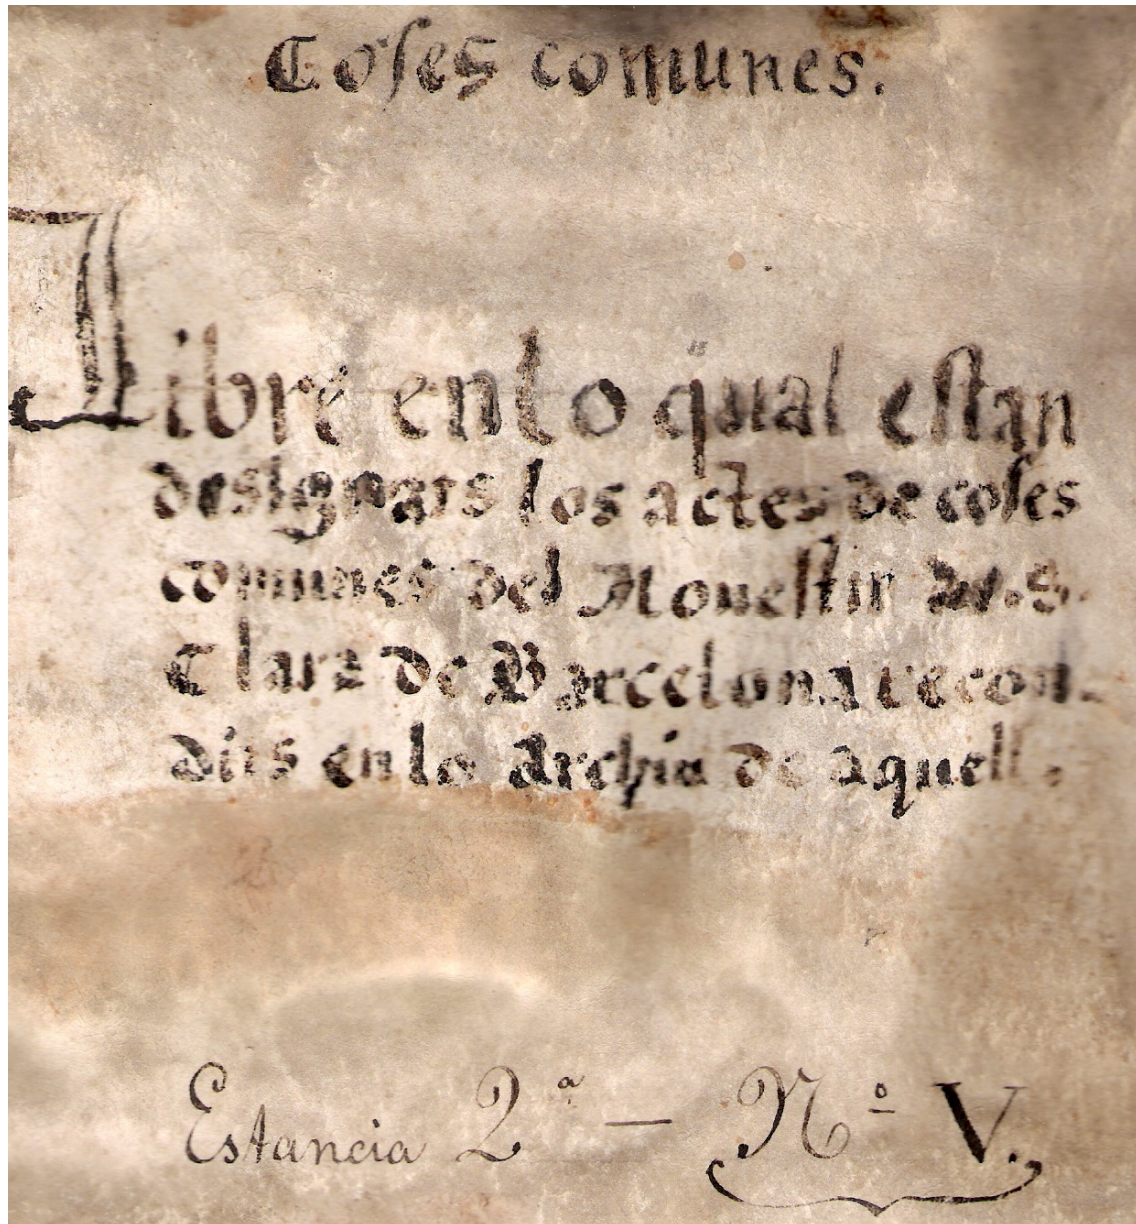 Coses comunes.
Libre en lo qual estan
designats los actes de coses
comunes del Monestir de S.
Clara de Barcelona recon-
dits en lo Archiu de aquell.
Estancia 2ª — Nº V.